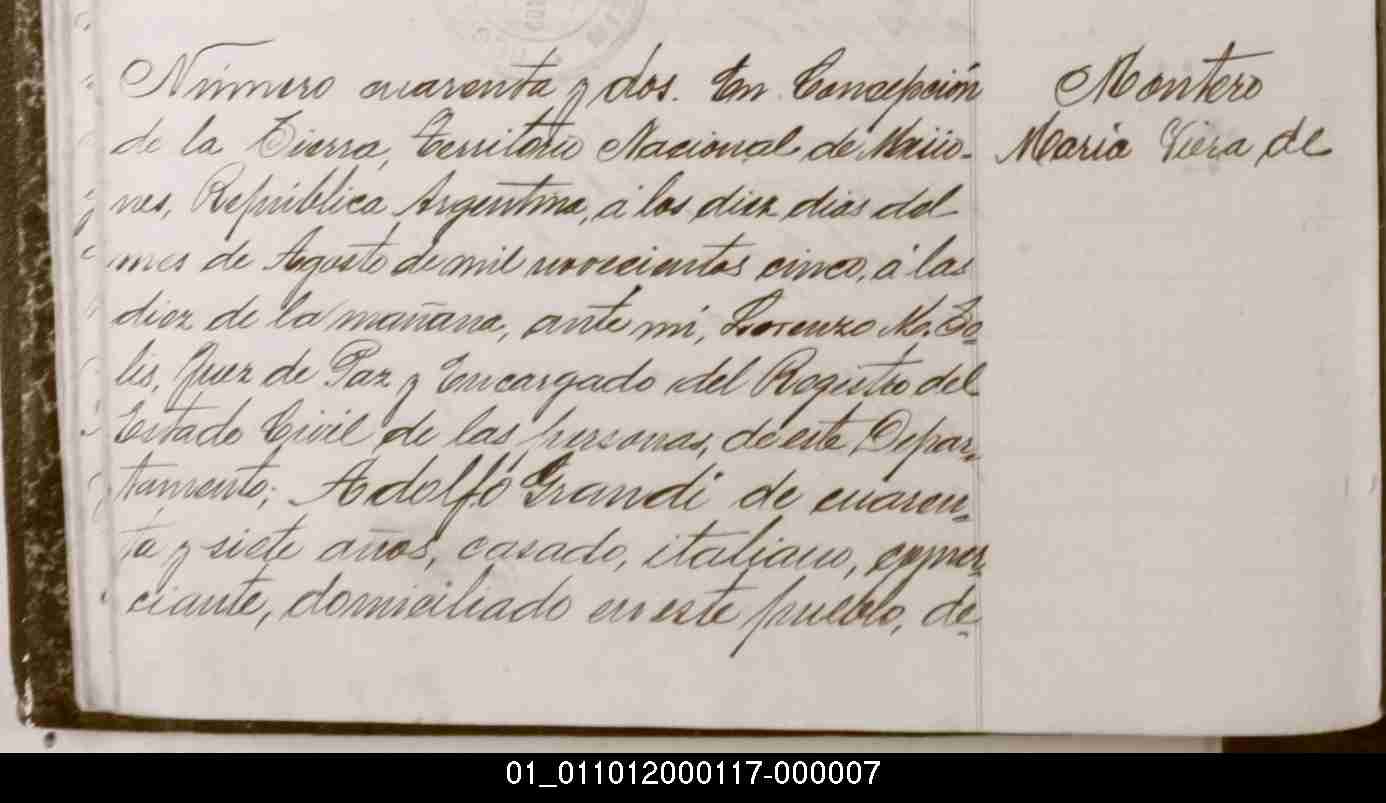 Número cuarenta y dos. En Concepción
de la Sierra, Territorio Nacional de Misio-
nes, República Argentina, á los diez dias del
mes de Agosto de mil novecientos cinco, á las
diez de la mañana, ante mi, Lorenzo Ma.
lis, Juez de Paz y Encargado del Registro del
Estado Civil de las personas, de este Depar-
tamento; Adolfo Grandi de cuaren-
ta y siete años, casado, italiano, comer-
ciante, domiciliado en este pueblo, de-
Montero
Maria Viera de
01_011012000117-000007